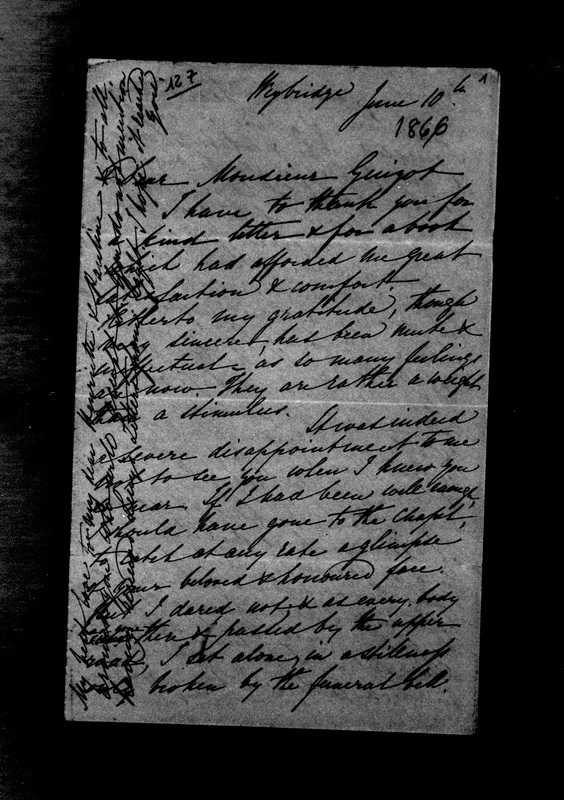 127
Weybridge June 10th 1
1866
Dear Monsieur Guizot
I have to thank you for
kind letter & for a book
which had afforded me great
satisfaction & comfort.
Hitherto my gratitude, though
very sincere, has been mute &
ineffectual, as so many feelings
are now. They are rather a weight
than a stimulus. It was indeed
a severe disappointment to me
not to see you when I knew you
near. If I had been well enough,
I should have gone to the Chapel,
to catch at any rate a glimpse
of your beloved & honoured face.
But I dared not & as every body
then & passed by the upper
road, I sat alone, in a stillness
broken by the funeral bell.
My best love to my dear Henriette & Pauline & to all